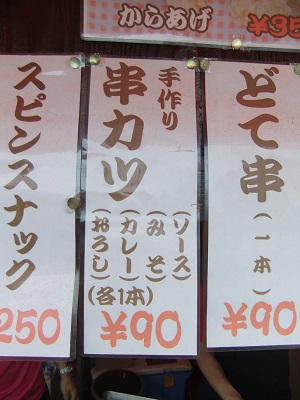 からあげ
¥35
どて串
(一本)
¥90
手作り
串カツ
(ソース)
(みそ)
(カレー)
(おろし)
(各1本)
¥90
スピンスナック
250